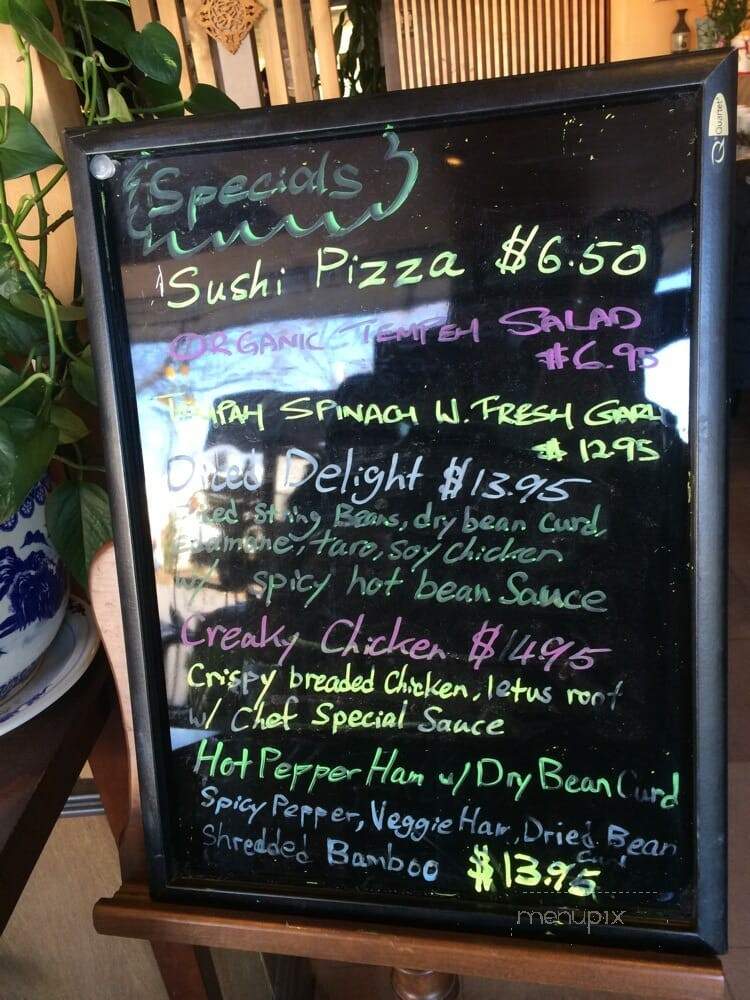 Quartet
Specials
Sushi Pizza $6.50
ORGANIC TEMPEH SALAD
$6.95
TEMPAH SPINACH W. FRESH GARL
$12.95
Diced Delight $13.95
Diced String Beans, dry bean curd,
Edamame, taro, soy chicken
w/ spicy hot bean Sauce
Creaky Chicken $14.95
Crispy breaded Chicken, letus root
w/ Chef Special Sauce
Hot Pepper Ham w/ Dry Bean Curd
Spicy Pepper, Veggie Ham, Dried Bean
Curd
Shredded Bamboo $13.95
menupix